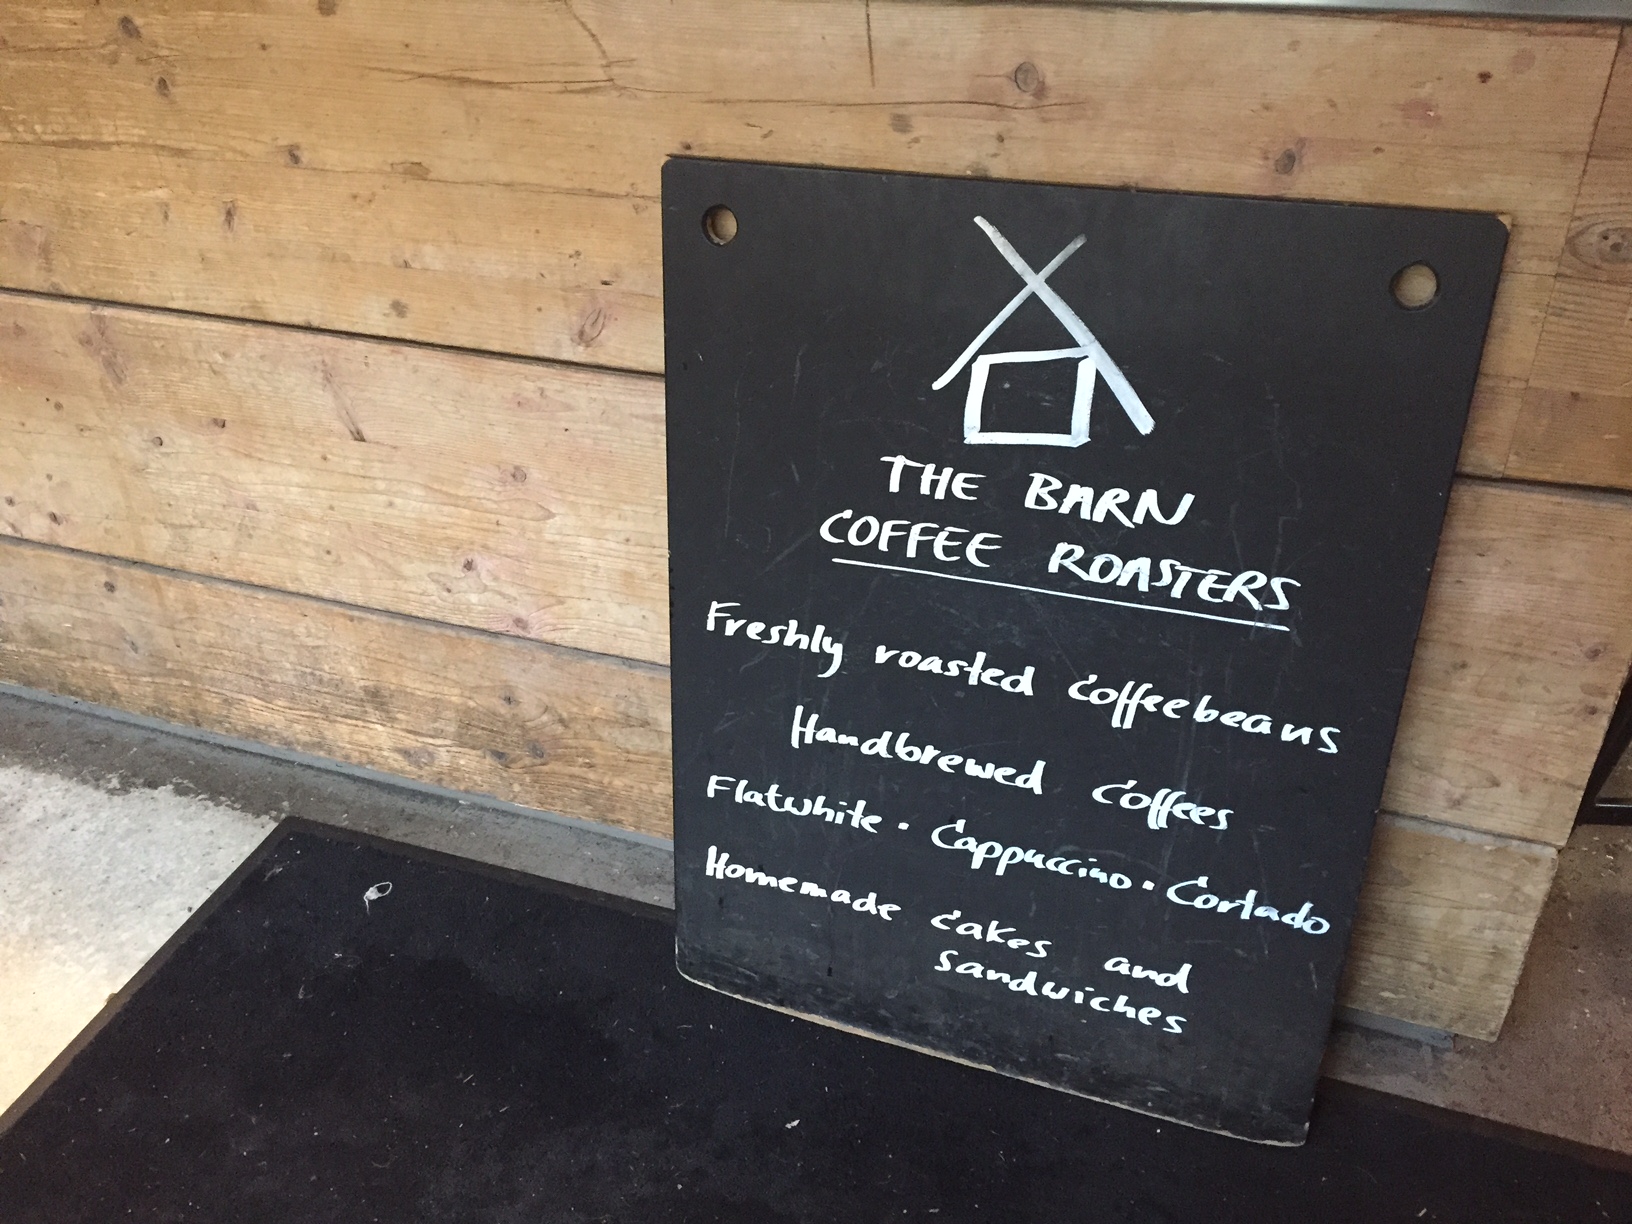 THE BARN
COFFEE ROASTERS
Freshly roasted coffeebeans
Handbrewed coffees
Flatwhite · Cappuccino · Cortado
Homemade cakes and
sandwiches